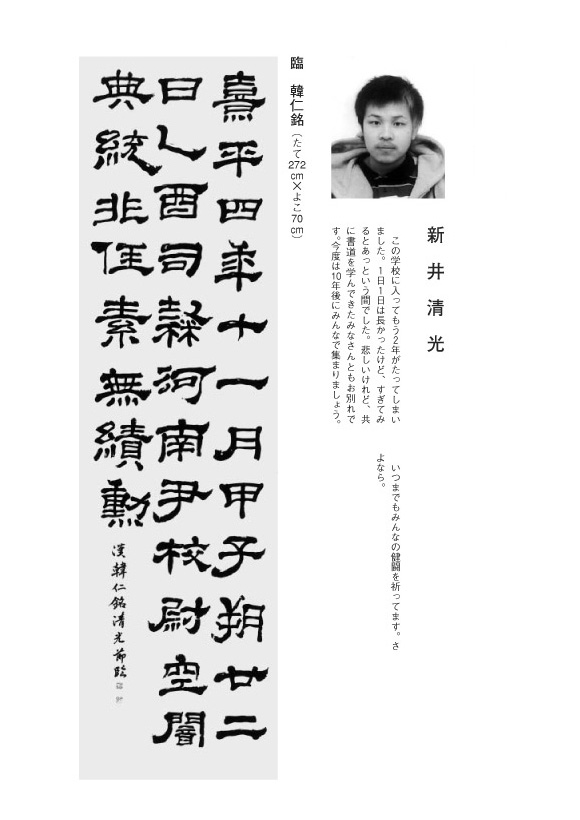 新井清光
この学校に入ってもう2年がたってしまい
ました。1日1日は長かったけど、すぎてみ
るとあっという間でした。悲しいけれど、共
に書道を学んできたみなさんともお別れで
す。今度は10年後にみんなで集まりましょう。
いつまでもみんなの健闘を祈ってます。さ
よなら。
臨 韓仁銘（たて272cm×よこ70cm）
熹平四年十一月甲子朔廿二
日乙酉司隸河南尹校尉空闇
典統非任素無績勳
漢韓仁銘清光節臨